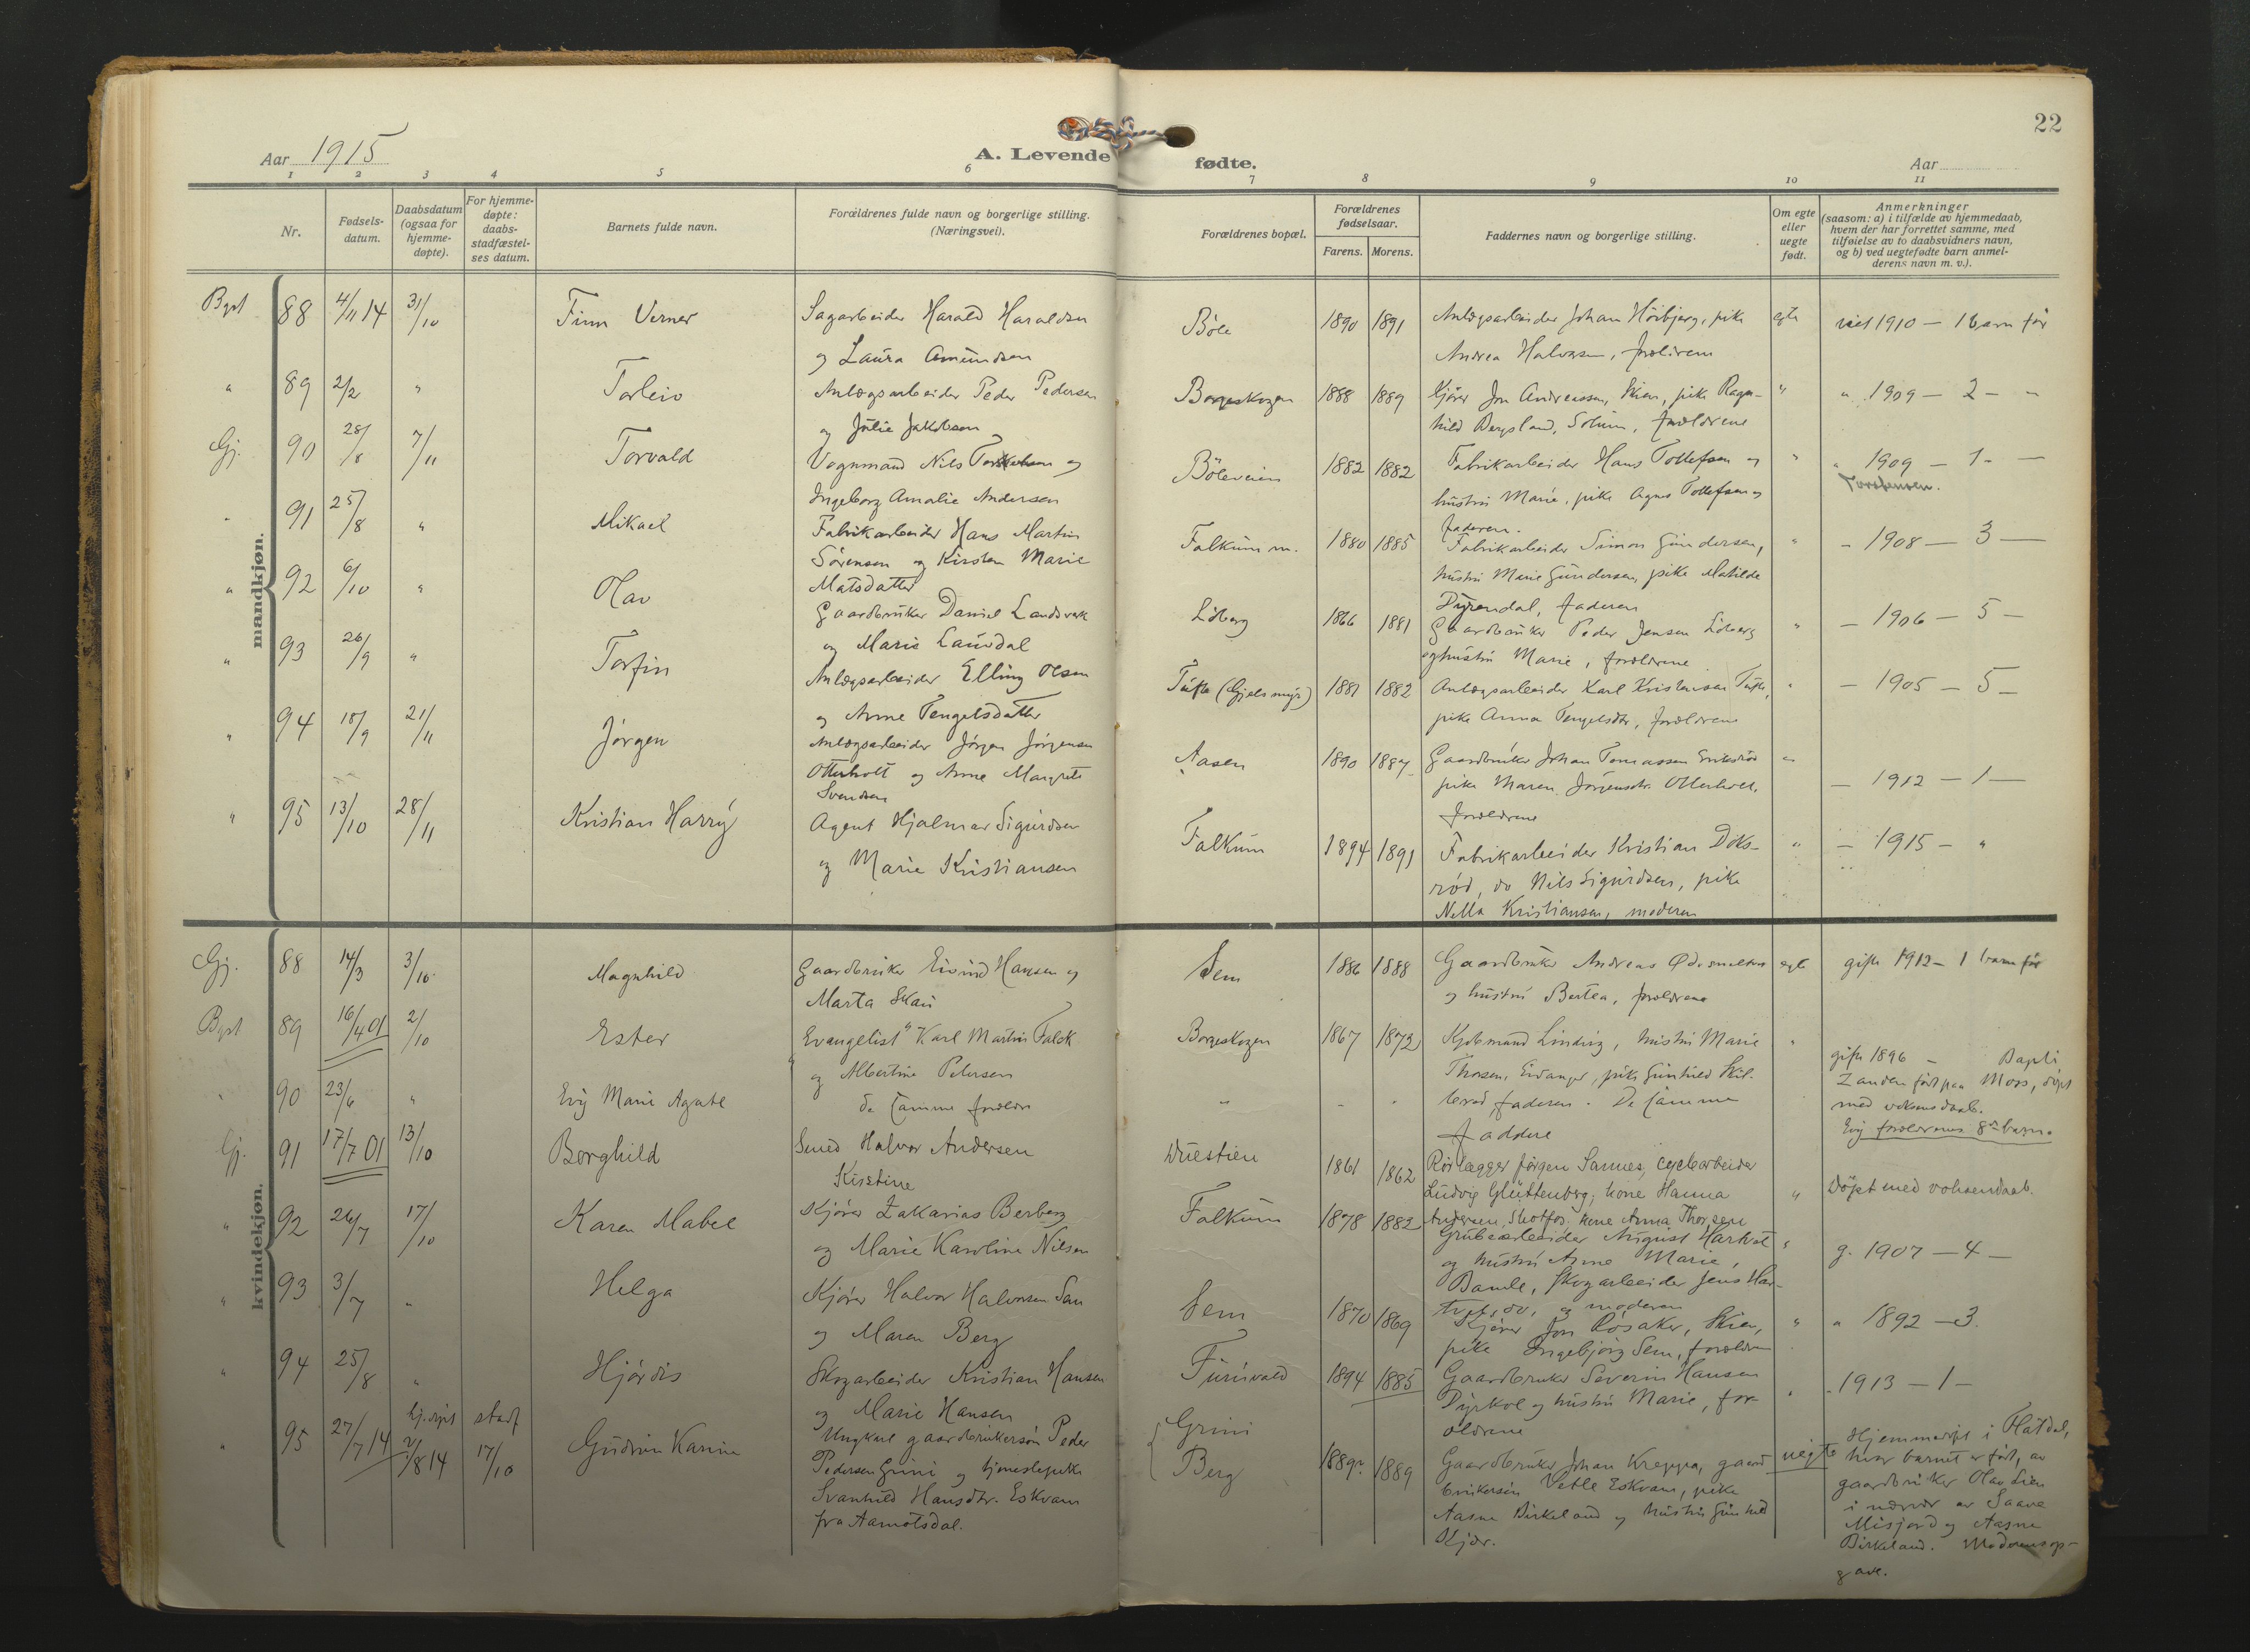 22
Aar 1915
A. Levende fødte.
Aar
1 2 3 4 5 6 7 8 9 10 11
Nr.
Fødsels-
datum.
Daabsdatum
(ogsaa for
hjemme-
døpte).
For hjemme-
døpte:
daabs-
stadfæstel-
ses datum.
Barnets fulde navn.
Forældrenes fulde navn og borgerlige stilling.
(Næringsvei).
Forældrenes bopæl.
Forældrenes
fødselsaar.
Farens. Morens.
Faddernes navn og borgerlige stilling.
Om egte
eller
uegte
født.
Anmerkninger
(saasom: a) i tilfælde av hjemmedaab,
hvem der har forrettet samme, med
tilføielse av to daabsvidners navn,
og b) ved uegtefødte barn anmel-
derens navn m. v.).
mandkjøn.
88 4/11 14 31/10 Finn Verner Sagarbeider Harald Haraldsen Böle 1890 1891 Anlægsarbeider Johan Höibjerg, pike egte viet 1910 — 1 barn før
og Laura Amundsen Andrea Halvorsen, forældrene
" 89 2/2 " Torleiv Anlægsarbeider Peder Pedersen Borgeskogen 1888 1889 Kjörer Jon Andreassen, Skien, pike Ragn- " " 1909 — 2 — "
og Julie Jakobsen hild Bergsland, Solum, forældrene
Gj. 90 28/8 7/11 Torvald Vognmand Nils og Böleveien 1882 1882 Fabrikarbeider Hans Tollefsen og " " 1909 — 1 — —
Ingeborg Amalie Andersen hustru Marie, pike Agnes Tollefsen og Torstensen.
faderen.
91 25/8 " Mikael Fabrikarbeider Hans Martin Falkum m. 1880 1885 Fabrikarbeider Simon Gundersen, " — 1908 — 3 —
Sörensen og Kirsten Marie hustru Marie Gundersen, pike Matilde
Matsdatter Dyrendal, faderen
" 92 6/10 " Olav Gaardbruker Daniel Landsverk Liberg 1866 1881 Gaardbruker Peder Jensen Liberg " — 1906 — 5 —
og Marie Laurdal og hustru Marie, forældrene
" 93 26/9 " Torfin Anlægsarbeider Elling Olsen Tufte (Gjelsmyr) 1881 1882 Anlægsarbeider Karl Kristensen Tufte, " — 1905 — 5 —
og Anne Tengelsdatter pike Anna Tengelsdtr, forældrene
" 94 18/9 21/11 Jørgen Anlægsarbeider Jörgen Jörgensen Aasen 1890 1887 Gaardbruker Johan Tomassen Eriksröd " — 1912 — 1 —
Otterholt og Anne Margrete pike Maren Jörgensdtr. Otterholt,
Svendsen forældrene
" 95 13/10 28/11 Kristian Harry Agent Hjalmar Sigurdsen Falkum 1894 1891 Fabrikarbeider Kristian Doks- " — 1915 — "
og Marie Kristiansen röd, do Nils Sigurdsen, pike
Nella Kristiansen, moderen
kvindekjøn.
Gj. 88 14/3 3/10 Magnhild Gaardbruker Eivind Hansen og Sem 1886 1888 Gaardbruker Andreas egte gift 1912 — 1 barn før
Marta Skau og hustru Bertea, forældrene
89 16/4 01 2/10 Ester "Evangelist" Karl Martin Falck Borgeskogen 1867 1872 Kjøbmand Lindvig, hustru Marie " gift 1896 —
og Albertine Petersen Thorsen, Eidanger, pike Gunhild Skil-
brod, faderen. De samme Moss, döpt
" 90 23/6 " Evy Marie Agate de samme foreldre " " " faddere med voksendaab.
Evy forældrenes 8de barn.
Gj. 91 17/7 01 13/10 Borghild Smed Halvor Andersen Duestien 1861 1862 Rörlægger Jörgen Sannes, cyclearbeider
Kirstine Ludvig Gluttenberg, kone Hanna " Döpt med voksendaab.
Andersen, Skotfos, kone Anna Thorsen
" 92 26/7 17/10 Karen Mabel Kjörer Zakarias Berberg Falkum 1878 1882 Grubearbeider August Hartvet " g. 1907 — 4 —
og Marie Karoline Nilsen og hustru Anne Marie,
Bamle, skogarbeider Jens Har-
tvet, do, og moderen
" 93 3/7 " Helga Kjörer Halvor Halvorsen Sem 1870 1869 Kjörer Jon Rösaker, Skien, " " 1892 — 3.
og Maren Berg pike Ingebjörg Sem, forældre
" 94 25/8 " Hjördis Skogarbeider Kristian Hansen Furuvald 1894 1885 Gaardbruker Severin Hansen " " 1913 — 1 —
og Marie Hansen Dyrkol og hustru Marie, for-
ældrene
" 95 27/7 14 hj.døpt 2/8 14 stadf 17/10 Gudrun Karine Ungkarl gaardbrukersøn Peder Grini 1889 1889 Gaardbruker Johan Kreppa, gaard- uegte Hjemmedøpt i Flatdal,
Pedersen Grini og tjenestepike Berg brukersön Vetle Eskvam, pike hvor barnet er født, av
Svanhild Hansdtr. Eskvam Aasne Birkeland og hustru Gunhild gaardbruker Olav Lien
fra Aamotsdal. Kjær. i nærvær av Saave
Misjord og Aasne
Birkeland. Moderens op-
gave.